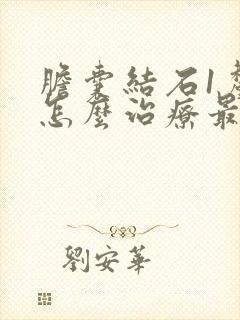 膽囊結石1
怎麼治療最
劉安華